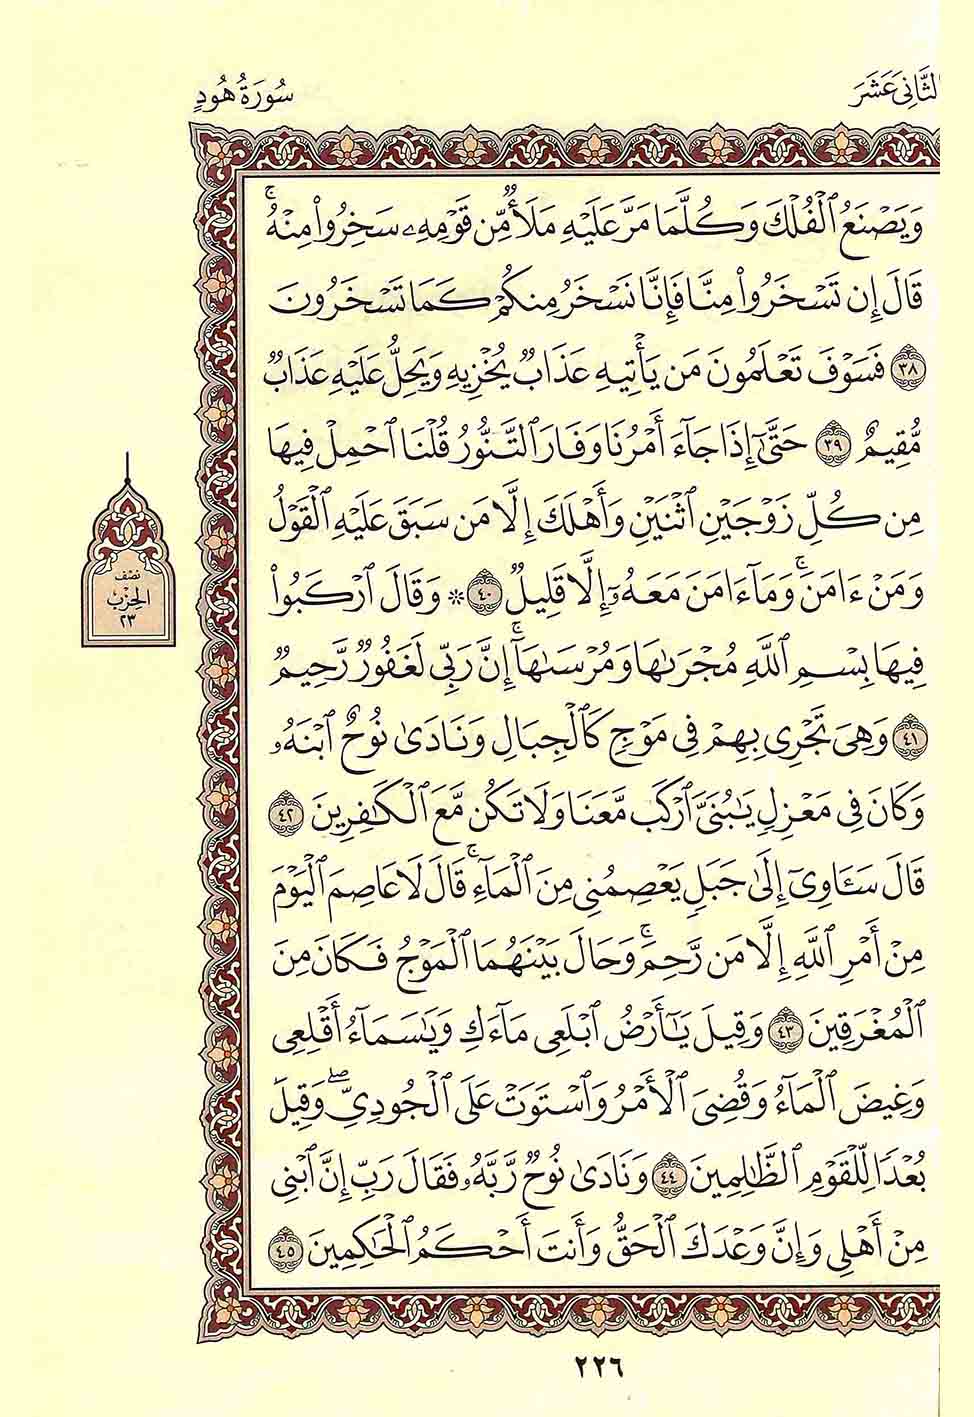 الثَّانِي عَشَرَ
سُورَةُ هُودٍ
وَيَصْنَعُ ٱلْفُلْكَ وَكُلَّمَا مَرَّ عَلَيْهِ مَلَأٌ مِّن قَوْمِهِۦ سَخِرُوا۟ مِنْهُ ۚ
قَالَ إِن تَسْخَرُوا۟ مِنَّا فَإِنَّا نَسْخَرُ مِنكُمْ كَمَا تَسْخَرُونَ
٣٨ فَسَوْفَ تَعْلَمُونَ مَن يَأْتِيهِ عَذَابٌ يُخْزِيهِ وَيَحِلُّ عَلَيْهِ عَذَابٌ
مُّقِيمٌ ٣٩ حَتَّىٰٓ إِذَا جَآءَ أَمْرُنَا وَفَارَ ٱلتَّنُّورُ قُلْنَا ٱحْمِلْ فِيهَا
مِن كُلٍّ زَوْجَيْنِ ٱثْنَيْنِ وَأَهْلَكَ إِلَّا مَن سَبَقَ عَلَيْهِ ٱلْقَوْلُ
وَمَنْ ءَامَنَ ۚ وَمَآ ءَامَنَ مَعَهُۥٓ إِلَّا قَلِيلٌ ٤٠ ۞ وَقَالَ ٱرْكَبُوا۟
فِيهَا بِسْمِ ٱللَّهِ مَجْر۪ىٰهَا وَمُرْسَىٰهَآ ۚ إِنَّ رَبِّى لَغَفُورٌ رَّحِيمٌ
٤١ وَهِىَ تَجْرِى بِهِمْ فِى مَوْجٍ كَٱلْجِبَالِ وَنَادَىٰ نُوحٌ ٱبْنَهُۥ
وَكَانَ فِى مَعْزِلٍ يَـٰبُنَىَّ ٱرْكَب مَّعَنَا وَلَا تَكُن مَّعَ ٱلْكَـٰفِرِينَ ٤٢
قَالَ سَـَٔاوِىٓ إِلَىٰ جَبَلٍ يَعْصِمُنِى مِنَ ٱلْمَآءِ ۚ قَالَ لَا عَاصِمَ ٱلْيَوْمَ
مِنْ أَمْرِ ٱللَّهِ إِلَّا مَن رَّحِمَ ۚ وَحَالَ بَيْنَهُمَا ٱلْمَوْجُ فَكَانَ مِنَ
ٱلْمُغْرَقِينَ ٤٣ وَقِيلَ يَـٰٓأَرْضُ ٱبْلَعِى مَآءَكِ وَيَـٰسَمَآءُ أَقْلِعِى
وَغِيضَ ٱلْمَآءُ وَقُضِىَ ٱلْأَمْرُ وَٱسْتَوَتْ عَلَى ٱلْجُودِىِّ ۖ وَقِيلَ
بُعْدًا لِّلْقَوْمِ ٱلظَّـٰلِمِينَ ٤٤ وَنَادَىٰ نُوحٌ رَّبَّهُۥ فَقَالَ رَبِّ إِنَّ ٱبْنِى
مِنْ أَهْلِى وَإِنَّ وَعْدَكَ ٱلْحَقُّ وَأَنتَ أَحْكَمُ ٱلْحَـٰكِمِينَ ٤٥
نِصْف
الحِزْب
٢٣
٢٢٦